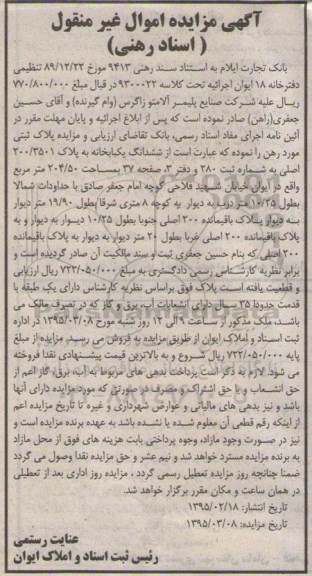 آگهی مزایده اموال غیر منقول
( اسناد رهنی)
بانک تجارت ایلام به استناد سند رهنی ۹۴۱۳ مورخ ۸۹/۱۲/۲۲ تنظیمی
دفترخانه ۱۸ ایوان اجرائیه تحت کلاسه ۹۳۰۰۰۲۲ در قبال مبلغ ۷۷۰/۸۰۰/۰۰۰
ریال علیه شرکت صنایع پلیمر آلامتو زاگرس (وام گیرنده) و آقای حسین
جعفری(راهن) صادر نموده است که پس از ابلاغ اجرائیه و پایان مهلت مقرر در
آئین نامه اجرای مفاد اسناد رسمی، بانک تقاضای ارزیابی و مزایده پلاک ثبتی
مورد رهن را نموده که عبارت است از ششدانگ یکبابخانه به پلاک ۲۰۰/۳۵۰۱
اصلی به شماره ثبت ۲۸۰ و دفتر ۳، صفحه ۳۷ بمساحت ۲۰۴/۵۰ متر مربع
واقع در ایوان، خیابان شهید فلاحی کوچه امام جعفر صادق با حدودات شمالا
بطول ۱۰/۲۵ متر درب به دیوار به کوچه ۸ متری شرقا بطول ۱۹/۹۰ متر دیوار
به دیوار پلاک باقیمانده ۲۰۰ اصلی جنوبا بطول ۱۰/۲۵ دیوار به دیوار و به
پلاک باقیمانده ۲۰۰ اصلی غربا بطول ۲۰ متر دیوار به دیوار به پلاک باقیمانده
۲۰۰ اصلی که بنام حسین جعفری ثبت و سند مالکیت آن صادر گردیده است و
برابر نظریه کارشناس رسمی دادگستری به مبلغ ۷۲۲/۰۵۰/۰۰۰ ریال ارزیابی
و قطعیت یافته است پلاک فوق براساس نظریه کارشناس دارای یک طبقه با
قدمت حدودا ۳۵ سال دارای انشعابات آب، برق و گاز که در تصرف مالک می
باشد، ملک مذکور از ساعت ۹ الی ۱۲ روز شنبه مورخ ۱۳۹۵/۰۳/۰۸ در اداره
ثبت اسناد و املاک ایوان از طریق مزایده به فروش می رسید. مزایده از مبلغ
پایه ۷۲۲/۰۵۰/۰۰۰ ریال شروع و به بالاترین قیمت پیشنهادی نقدا فروخته
می شود. لازم به ذکر است پرداخت بدهی های مربوط به آب، برق، گاز اعم از
حق انشعاب و یا حق اشتراک و مصرف در صورتی که مورد مزایده دارای آنها
باشد و نیز بدهی های مالیاتی و عوارض شهرداری و غیره تا تاریخ مزایده اعم
از اینکه رقم قطعی آن معلوم شده یا نشده باشد به عهده برنده مزایده است و
نیز در صورت وجود مازاد، وجوه پرداختی بابت هزینه های فوق از محل مازاد
به برنده مزایده مسترد خواهد شد و نیم عشر و حق مزایده نقدا وصول می گردد
ضمنا چنانچه روز مزایده تعطیل رسمی گردد ، مزایده روز اداری بعد از تعطیلی
در همان ساعت و مکان مقرر برگزار خواهد شد.
تاریخ انتشار: ۱۳۹۵/۰۲/۱۸
تاریخ مزایده: ۱۳۹۵/۰۳/۰۸
عنایت رستمی
رئیس ثبت اسناد و املاک ایوان